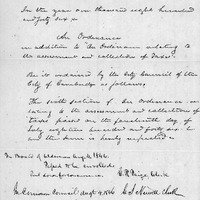 In the year one thousand eight hundred
and forty six
An Ordinance
in addition to "An Ordinance relating to
the assessment and collection of taxes.
Be it ordained by the City Council of the
City of Cambridge as follows.
The sixth section of "An Ordinance re-
lating to the assessment and collection of
taxes passed on the fourteenth day of
July eighteen hundred and forty six
and the same is hereby repealed.
In Board of Aldermen Aug 4, 1846.
Passed to be enrolled
Clerk
In Common Council Aug 4, 1846